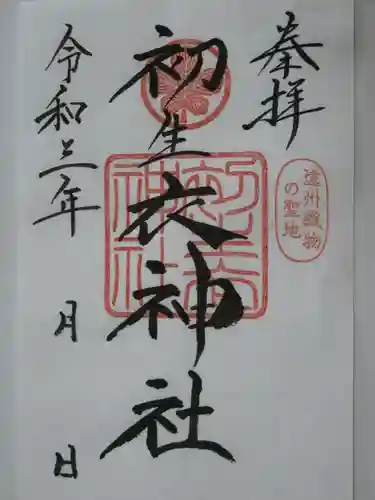 奉拝
遠州織物
の聖地
初生衣神社
令和三年 月 日